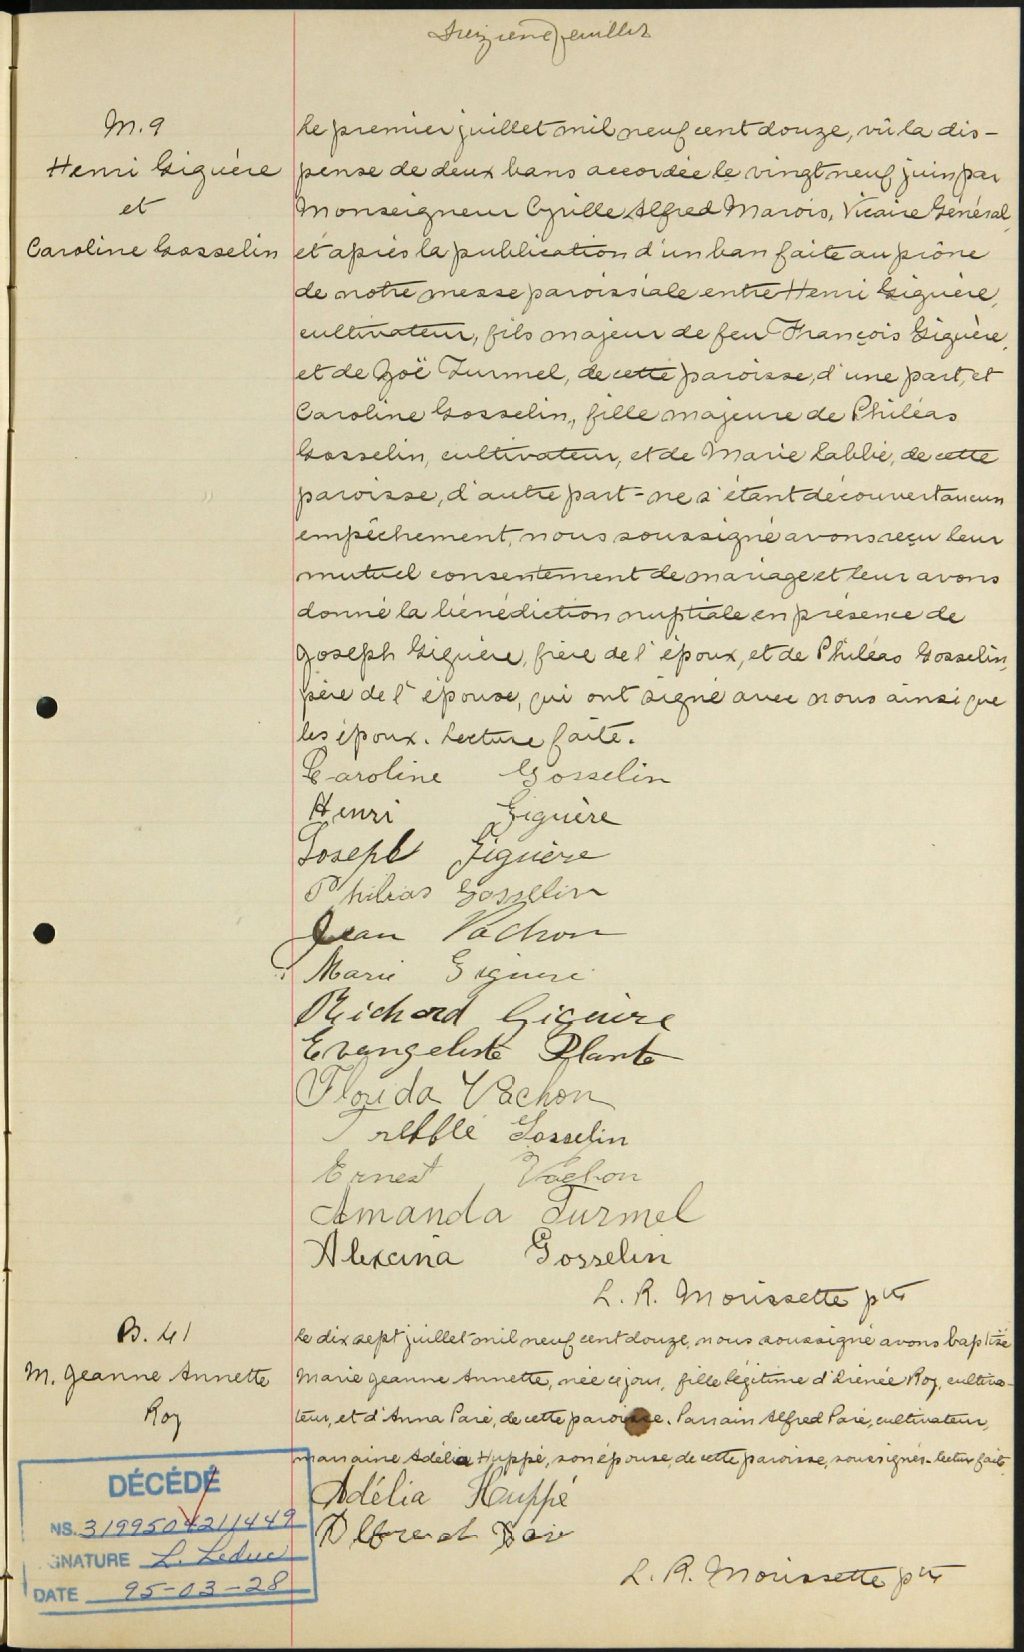 Treizième feuillet
M. 9
Henri Giguère
et
Caroline Gosselin
Le premier juillet mil neuf cent douze, vû la dis-
pense de deux bans accordée le vingt neuf juin par
Monseigneur Cyrille Alfred Marois, Vicaire Général,
et après la publication d'un ban faite au prône
de notre messe paroissiale entre Henri Giguère,
cultivateur, fils majeur de feu François Giguère,
et de Zoë Turmel, de cette paroisse, d'une part, et
Caroline Gosselin, fille majeure de Philéas
Gosselin, cultivateur, et de Marie Labbé, de cette
paroisse, d'autre part - ne s'étant découvert aucun
empêchement, nous soussigné avons reçu leur
mutuel consentement de mariage et leur avons
donné la bénédiction nuptiale en présence de
Joseph Giguère, frère de l'époux, et de Philéas Gosselin,
père de l'épouse, qui ont signé avec nous ainsi que
les époux. Lecture faite.
Caroline Gosselin
Henri Giguère
Joseph Giguère
Philias Gosselin
Jean Vachon
Marie Giguere
Richard Giguère
Evangeliste Plante
Florida Vachon
Trefflé Gosselin
Ernest Vachon
Amanda Turmel
Alexina Gosselin
L. R. Morissette ptre
B. 41
M. Jeanne Annette
Roy
Le dix sept juillet mil neuf cent douze, nous soussigné avons baptisé
Marie Jeanne Annette, née ce jour, fille légitime d'Irénée Roy, cultiva-
teur, et d'Anna Paré, de cette paroisse. Parrain Alfred Paré, cultivateur,
marraine Adélia Huppé, son épouse, de cette paroisse, soussignés. Lecture faite.
Adélia Huppé
Alfred Paré
L. R. Morissette ptre
DÉCÉDÉ
NS. 3199504211449
GNATURE L. Leduc
DATE 95-03-28